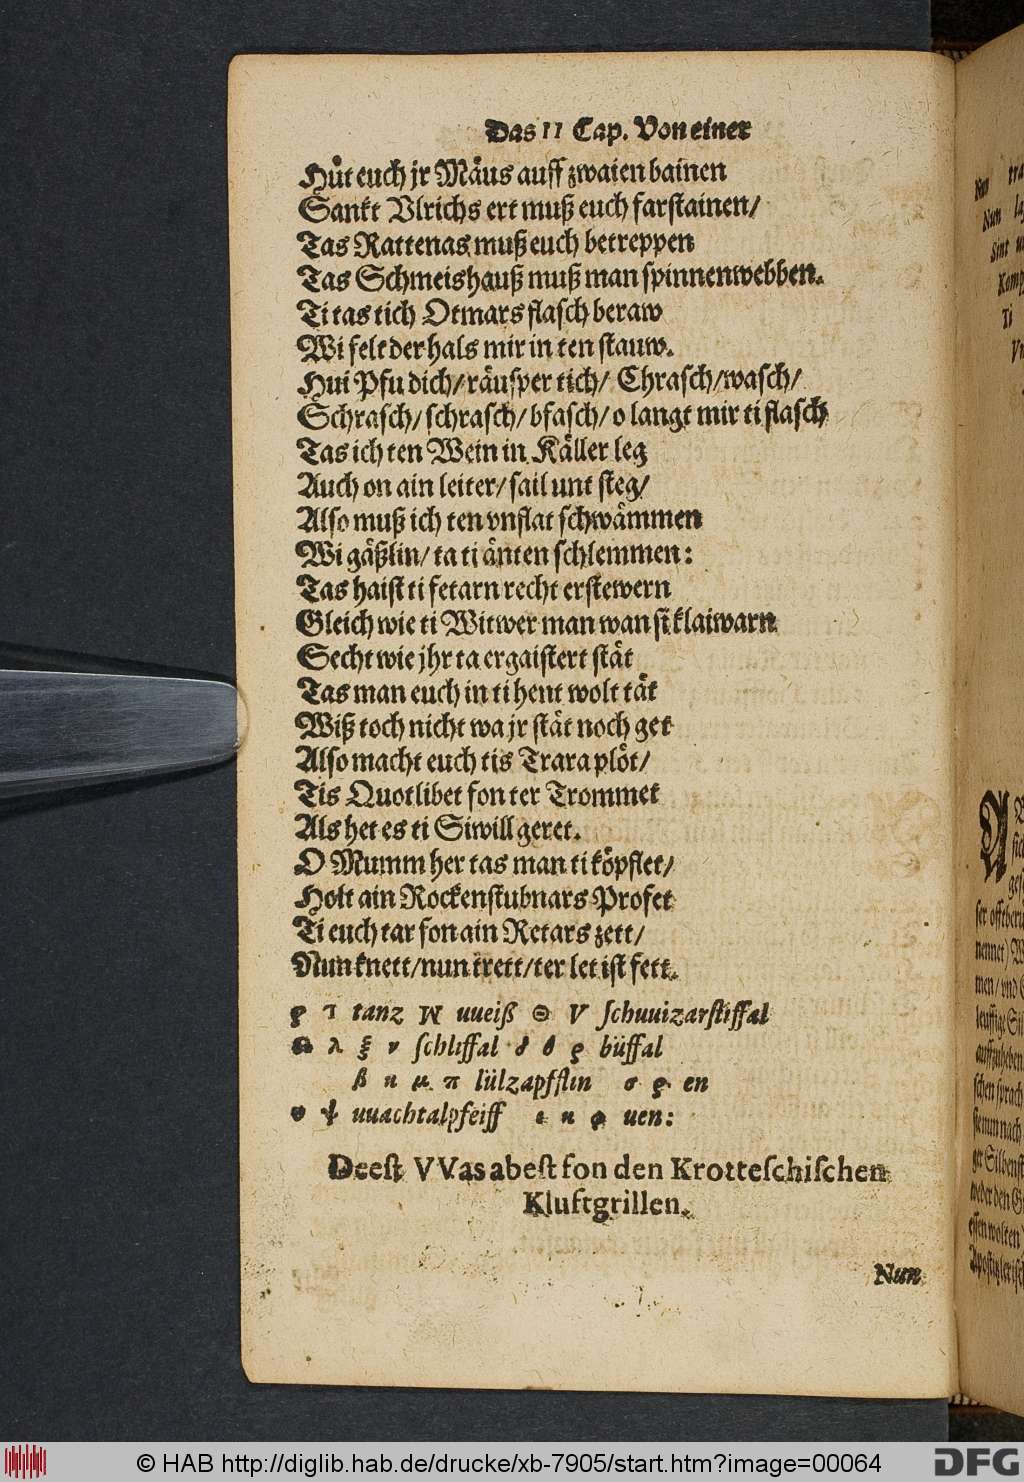 Das 11 Cap. Von einer
Hüt euch jr Mäus auff zwaien bainen
Sankt Vlrichs ert muß euch farstainen/
Tas Rattenas muß euch betreppen
Tas Schmeishauß muß man spinnenwebben.
Ti tas tich Otmars flasch beraw
Wi felt der hals mir in ten stauw.
Hui Pfu dich/ räusper tich/ Chrasch/wasch/
Schrasch/ schrasch/ bfasch/ o langt mir ti flasch
Tas ich ten Wein in Käller leg
Auch on ain leiter/ sail unt steg/
Also muß ich ten vnflat schwämmen
Wi gäßlin/ ta ti änten schlemmen:
Tas haist ti fetarn recht erstewern
Gleich wie ti Witwer man wan si klaiwarn
Secht wie jhr ta ergaistert stät
Tas man euch in ti hent wolt tät
Wiß toch nicht wa jr stät noch get
Also macht euch tis Trara plöt/
Tis Quotlibet fon ter Trommet
Als het es ti Siwill geret.
O Mumm her tas man ti köpflet/
Holt ain Rockenstubnars Profet
Ti euch tar fon ain Retars zett/
Nun knett/nun trett/ter let ist fett.
tanz uueiß Θ V schuuizarstiffal
λ ξ ν schliffal büffal
β π μ π lülzapfflin σ ϱ en
ψ uuachtalpfeiff uen:
Deest VVas abest fon den Krotteschischen
Kluftgrillen.
Nun
© HAB http://diglib.hab.de/drucke/xb-7905/start.htm?image=00064
DFG